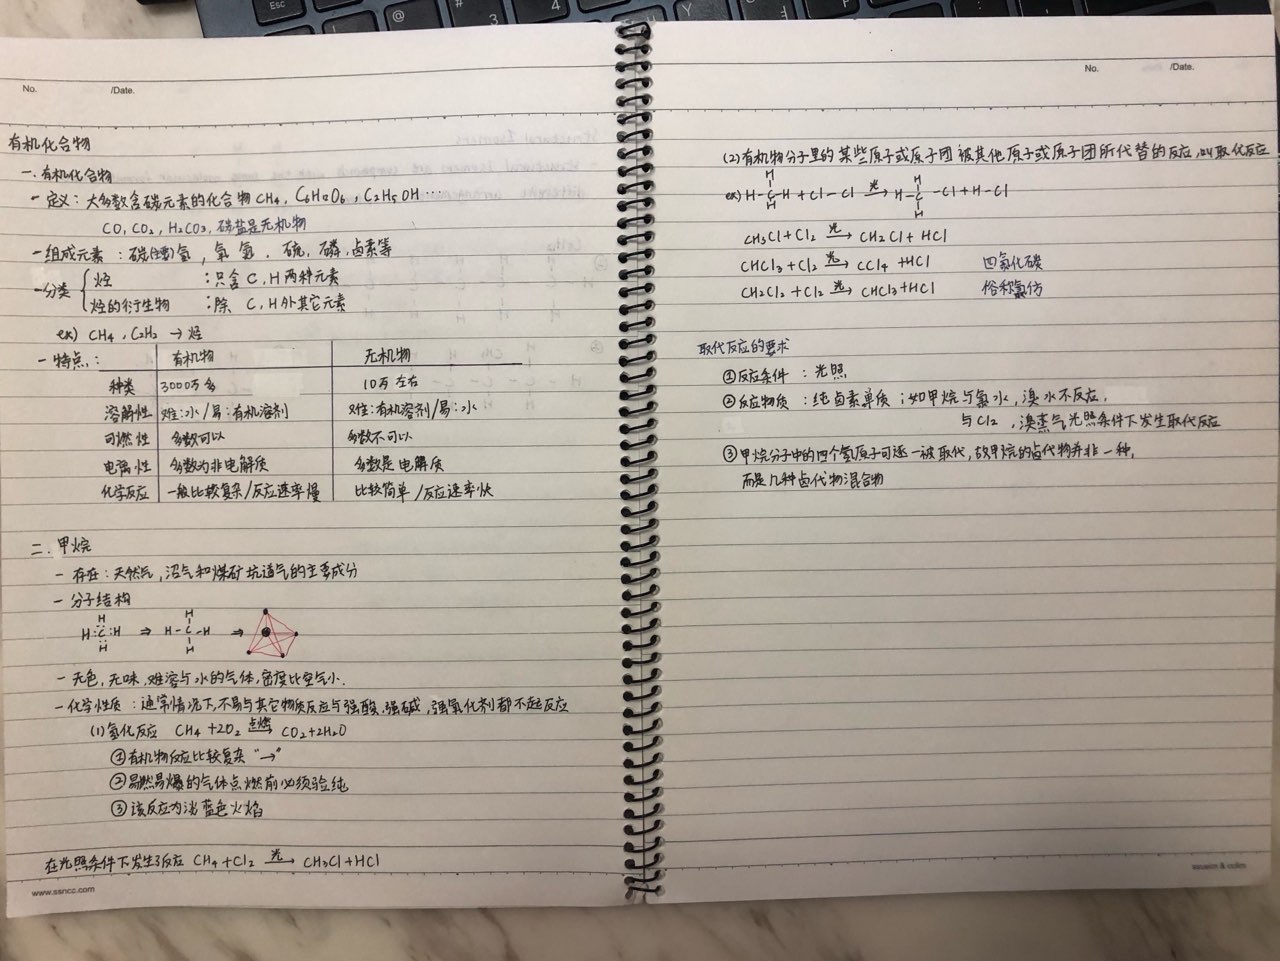 No.
/Date.
有机化合物
一.有机化合物
- 定义: 大多数含碳元素的化合物 CH4, C6H12O6, C2H5OH …
CO, CO2, H2CO3, 碳盐是无机物
- 组成元素: 碳(主要)氢, 氧 氮. 硫, 磷, 卤素等
- 分类 { 烃 : 只含 C, H 两种元素
烃的衍生物 : 除 C, H外其它元素
ex) CH4, C2H2 → 烃
- 特点: 有机物 无机物
种类 3000万多 10万左右
溶解性 难:水/易:有机溶剂 难:有机溶剂/易:水
可燃性 多数可以 多数不可以
电离性 多数为非电解质 多数是电解质
化学反应 一般比较复杂/反应速率慢 比较简单/反应速率快
二. 甲烷
- 存在: 天然气, 沼气和煤矿坑道气的主要成分
- 分子结构
H
H:C:H ⇒ H-C-H ⇒
H
- 无色, 无味, 难溶与水的气体, 密度比空气小.
- 化学性质: 通常情况下, 不易与其它物质反应与强酸, 强碱, 强氧化剂都不起反应
(1)氧化反应 CH4 +2O2 点燃→ CO2+2H2O
①有机物反应比较复杂 "→"
②易燃易爆的气体点燃前必须验纯
③该反应为淡蓝色火焰
在光照条件下发生了反应 CH4 +Cl2 光→ CH3Cl+HCl
www.ssncc.com
No.
/Date.
(2)有机物分子里的某些原子或原子团被其他原子或原子团所代替的反应, 叫取代反应
ex) H-C-H + Cl-Cl 光→ H-C-Cl + H-Cl
CH3Cl + Cl2 光→ CH2Cl + HCl
CHCl3 + Cl2 光→ CCl4 +HCl 四氯化碳
CH2Cl2 + Cl2 光→ CHCl3+HCl 俗称氯仿
取代反应的要求
①反应条件 : 光照
②反应物质 : 纯卤素单质; 如甲烷与氯水, 溴水不反应,
与Cl2, 溴蒸气光照条件下发生取代反应
③甲烷分子中的四个氢原子可逐一被取代, 故甲烷的卤代物并非一种,
而是几种卤代物混合物